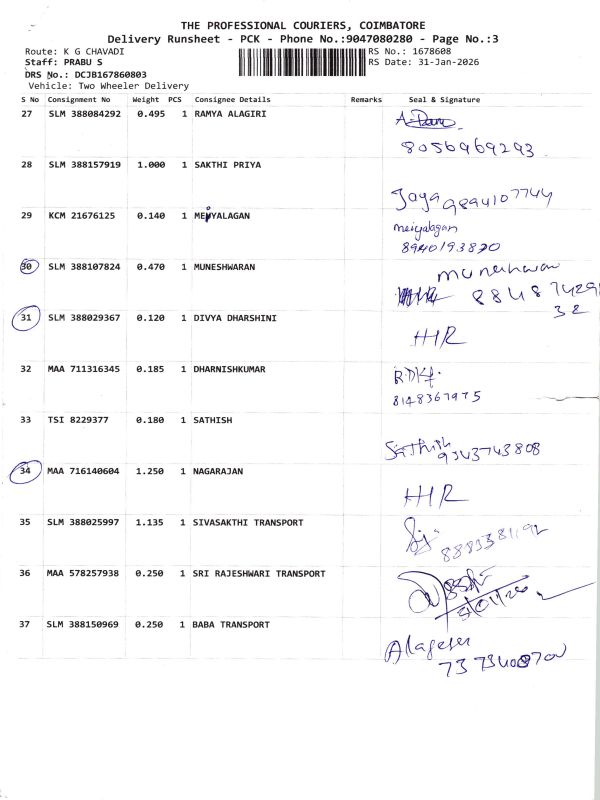 THE PROFESSIONAL COURIERS, COIMBATORE
Delivery Runsheet - PCK - Phone No.:9047080280 - Page No.:3
Route: K G CHAVADI RS No.: 1678608
Staff: PRABU S RS Date: 31-Jan-2026
DRS No.: DCJB167860803
Vehicle: Two Wheeler Delivery
S No Consignment No Weight PCS Consignee Details Remarks Seal & Signature
27 SLM 388084292 0.495 1 RAMYA ALAGIRI
8056969293
28 SLM 388157919 1.000 1 SAKTHI PRIYA
Jaya 9894107744
29 KCM 21676125 0.140 1 MEIYALAGAN
meiyalagan
8940193820
30 SLM 388107824 0.470 1 MUNESHWARAN
muneshwaran
88487429
32
31 SLM 388029367 0.120 1 DIVYA DHARSHINI
HR
32 MAA 711316345 0.185 1 DHARNISHKUMAR
8148367975
33 TSI 8229377 0.180 1 SATHISH
Sathish
9343743808
34 MAA 716140604 1.250 1 NAGARAJAN
HR
35 SLM 388025997 1.135 1 SIVASAKTHI TRANSPORT
36 MAA 578257938 0.250 1 SRI RAJESHWARI TRANSPORT
37 SLM 388150969 0.250 1 BABA TRANSPORT